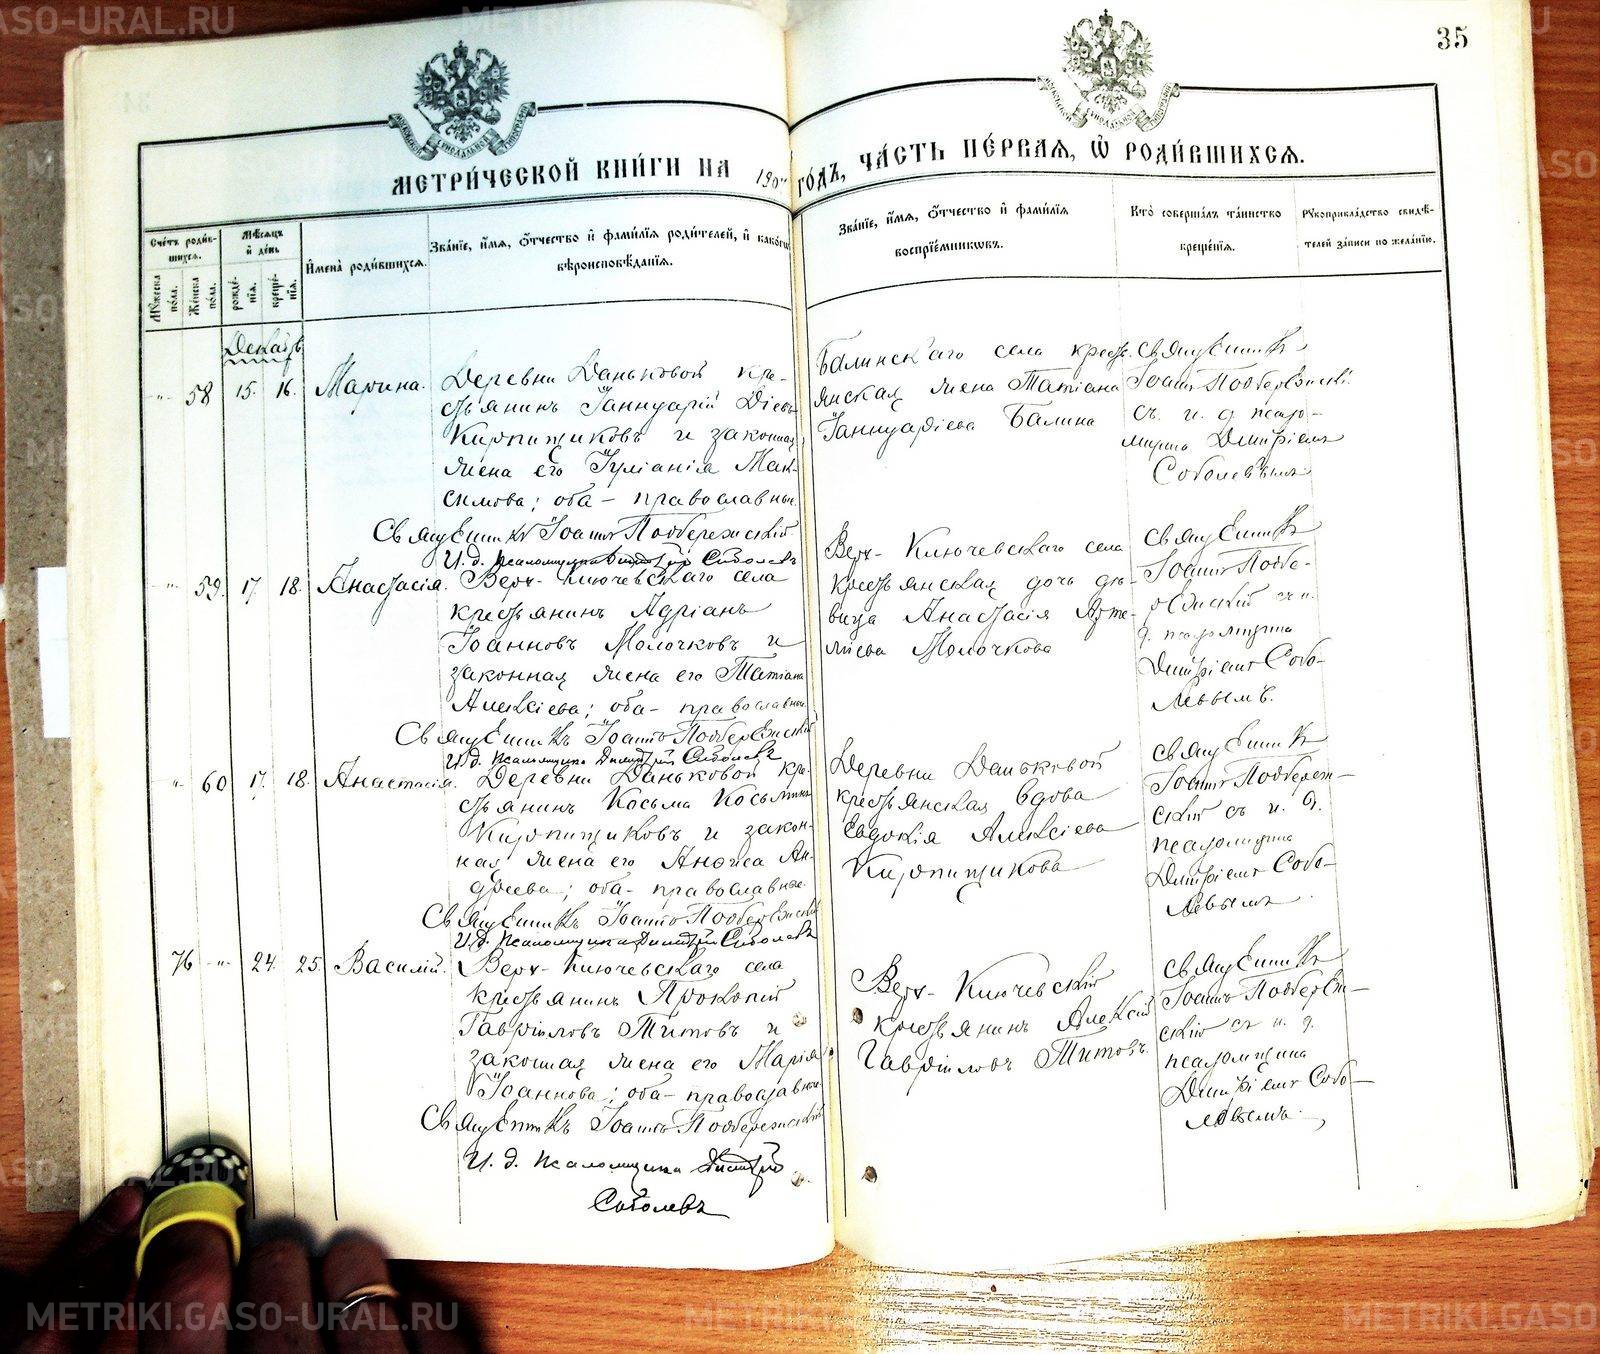 35
МЕТРИ́ЧЕСКОЙ КНИ́ГИ НА 190 ГО́ДЪ, ЧА́СТЬ ПЕ́РВАЯ, Ѡ РОДИ́ВШИХСЯ.
Сче́тъ роди́вшихся.
Мꙋ́жеска по́ла.
Же́нска по́ла.
Мѣ́сяцъ и҆ де́нь
рожде́нїѧ.
креще́нїѧ.
И҆мена̀ роди́вшихсѧ.
Зва́нїе, и҆́мѧ, ѻ҆́тчество и҆ фами́лїѧ роди́телей, и҆ како́гѡ
вѣроисповѣ́данїѧ.
Зва́нїе, и҆́мѧ, ѻ҆́тчество и҆ фами́лїѧ
воспрїе́мникѡвъ.
Кто̀ соверша́лъ та́инство
креще́нїѧ.
Рꙋкоприкла́дство свидѣ́-
телей за́писи по жела́нїю.
Декабрь
" 58 15. 16. Марина.
Деревни Даньковой кре-
стьянинъ Іаннуарій Діевъ
Кирпищиковъ и законная
жена его Іуліанія Мак-
симова; оба - православные
Священникъ Іоаннъ Подбережскій
И. д. Псаломщика Димитрій Соболевъ
Балинскаго села кресть-
янская жена Татіана
Іаннуаріева Балина
Священникъ
Іоаннъ Подбережскій
съ и. д. псало-
мщика Димитріемъ
Соболевымъ
" 59. 17. 18. Анастасія.
Верх-Ключевскаго села
крестьянинъ Адріанъ
Іоанновъ Молочковъ и
законная жена его Татіана
Алексіева; оба - православные
Священникъ Іоаннъ Подбережскій
И. д. Псаломщика Димитрій Соболевъ
Верх-Ключевскаго села
крестьянская дочь дѣ-
вица Анастасія Арте-
міева Молочкова
Священникъ
Іоаннъ Подбе-
режскій съ и.
д. псаломщика
Димитріемъ Собо-
левымъ.
" 60 17. 18. Анастасія.
Деревни Даньковой кре-
стьянинъ Косьма Косьминъ
Кирпищиковъ и закон-
ная жена его Анфиса Ан-
дреева; оба - православные
Священникъ Іоаннъ Подбережскій
И. д. Псаломщика Димитрій Соболевъ
Деревни Даньковой
крестьянская вдова
Евдокія Алексіева
Кирпищикова
Священникъ
Іоаннъ Подбереж-
скій съ и. д.
псаломщика
Димитріемъ Собо-
левымъ.
76 " 24. 25. Василій.
Верх-Ключевскаго села
крестьянинъ Прокопій
Гавріиловъ Титовъ и
законная жена его Марія
Іоаннова; оба - православные
Священникъ Іоаннъ Подбережскій
И. д. Псаломщика Димитрій
Соболевъ
Верх-Ключевскій
крестьянинъ Алексій
Гавріиловъ Титовъ.
Священникъ
Іоаннъ Подбереж-
скій съ и. д.
псаломщика
Димитріемъ Собо-
левымъ.
METRIKI.GASO-URAL.RU